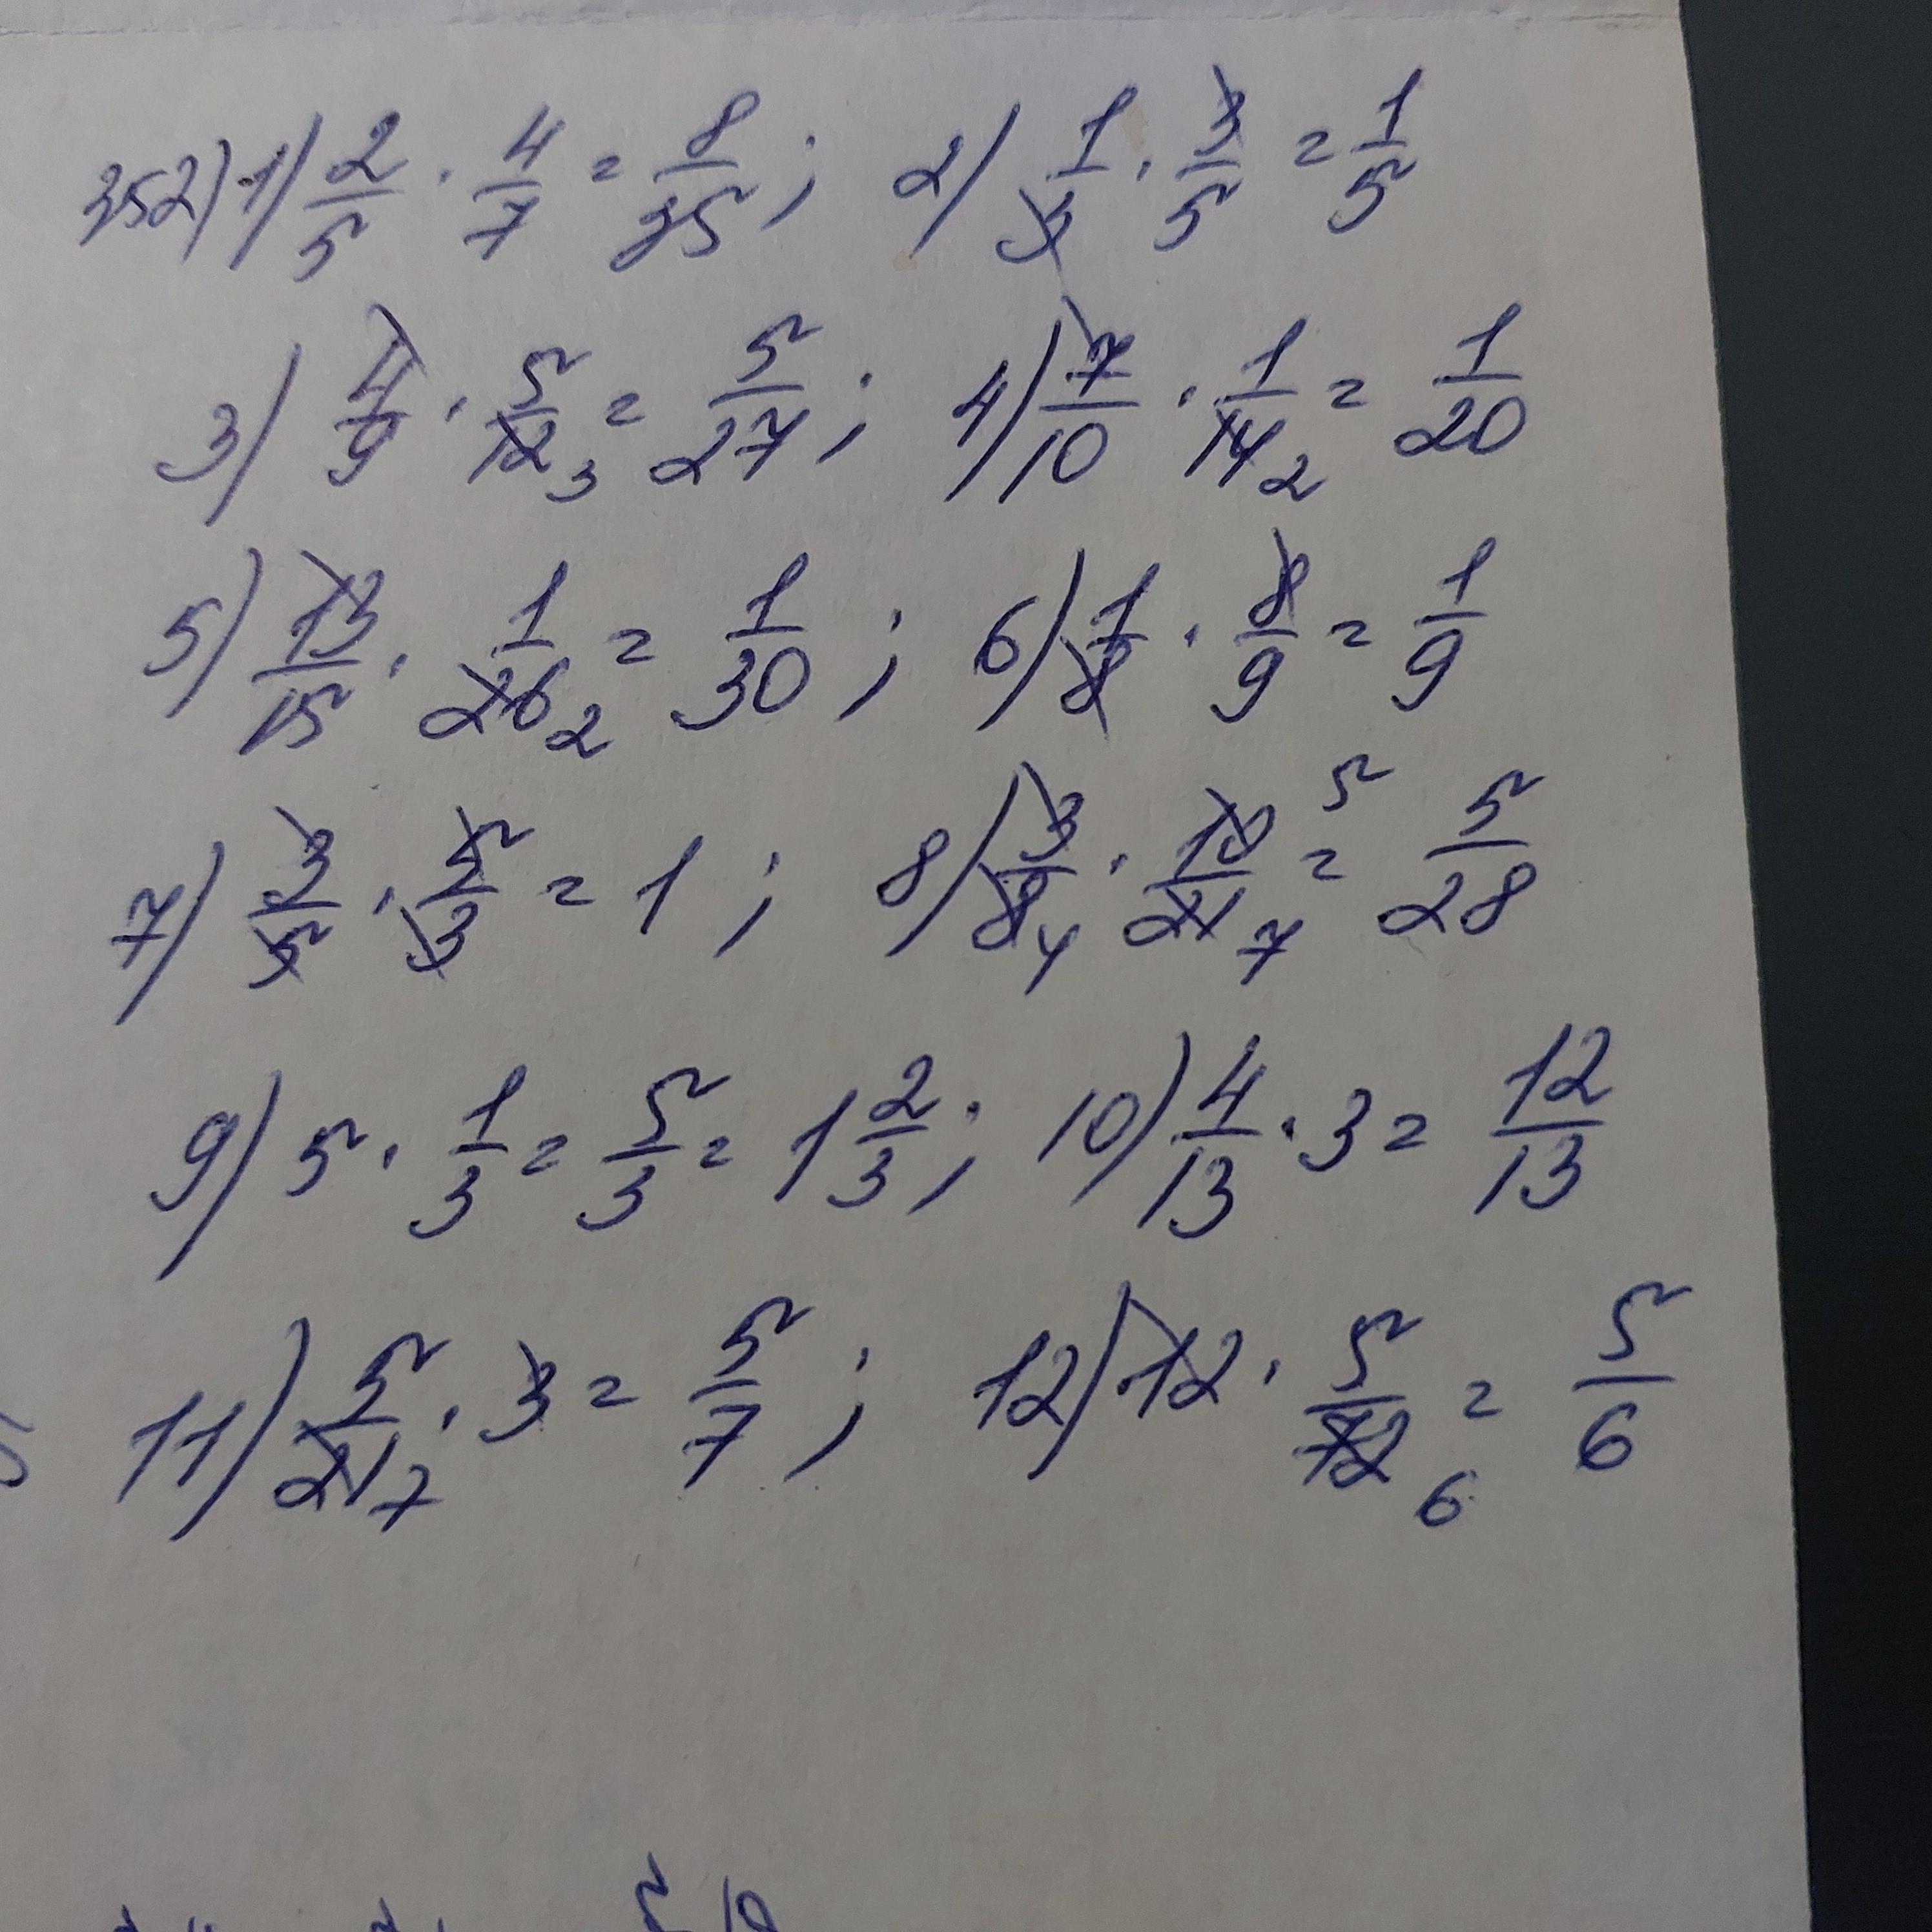 352) 1) 2/5 · 4/7 = 8/35 ; 2) 1/3 · 3/5 = 1/5
3) 4/9 · 5/12 3 = 5/27 ; 4) 7/10 · 1/14 2 = 1/20
5) 13/15 · 1/26 2 = 1/30 ; 6) 1/8 · 8/9 = 1/9
7) 3/5 · 5/3 = 1 ; 8) 3/8 4 · 10 5/21 7 = 5/28
9) 5 · 1/3 = 5/3 = 1 2/3 ; 10) 4/13 · 3 = 12/13
11) 5/21 7 · 3 = 5/7 ; 12) 12 · 5/72 6 = 5/6